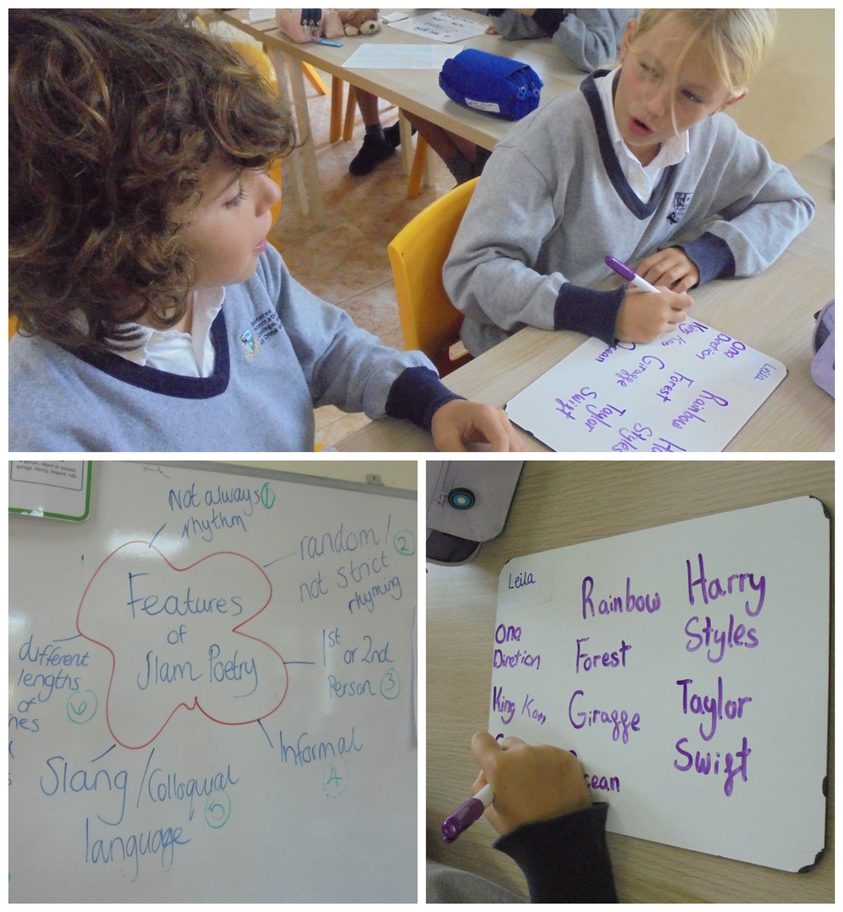 Leila
One
Direction
King Kon
Ocean
Rainbow
Forest
Giragge
Styles
Taylor
Swift
Not always 1
rhythm
random/ 2
not strict
rhyming
Features
of
Slam Poetry
1st
or 2nd
Person 3
Informal
4
Slang/Colloquial
5
language
different
lengths
of 6
nes
Leila
One
Direction
King Kon
Rainbow
Forest
Giragge
cean
Harry
Styles
Taylor
Swift